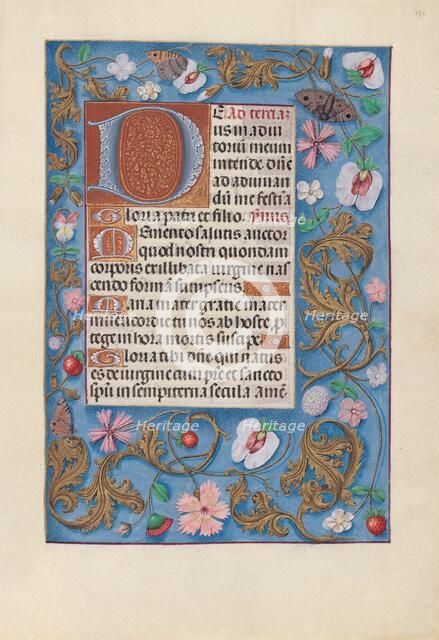 Ad tercia3
Eus in adiu
torium meum
intende. dñe
ad adiuuan
dū me festīa
Gloria patri et filio. ymus
Memento salutis auctor
quod nostri quondam
corporis ex illibata virgine nas
cendo formā sumpseris
Maria mater gratie mater
misericordie tu nos ab hoste p
tege in hora mortis suscipe
Gloria tibi dñe qui natus
es de virgine cum pr̄e et sancto
spū in sempiterna secula amē
Heritage
Images